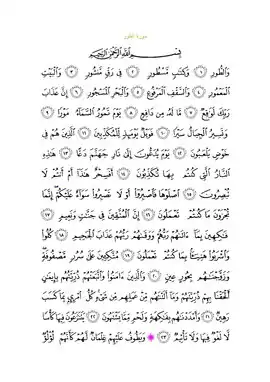 سورة الطور
بِسْمِ اللَّهِ الرَّحْمَٰنِ الرَّحِيمِ
وَالطُّورِ ١ وَكِتَابٍ مَّسْطُورٍ ٢ فِي رَقٍّ مَّنشُورٍ ٣ وَالْبَيْتِ
الْمَعْمُورِ ٤ وَالسَّقْفِ الْمَرْفُوعِ ٥ وَالْبَحْرِ الْمَسْجُورِ ٦ إِنَّ عَذَابَ
رَبِّكَ لَوَاقِعٌ ٧ مَّا لَهُ مِن دَافِعٍ ٨ يَوْمَ تَمُورُ السَّمَاءُ مَوْرًا ٩
وَتَسِيرُ الْجِبَالُ سَيْرًا ١٠ فَوَيْلٌ يَوْمَئِذٍ لِّلْمُكَذِّبِينَ ١١ الَّذِينَ هُمْ فِي
خَوْضٍ يَلْعَبُونَ ١٢ يَوْمَ يُدَعُّونَ إِلَىٰ نَارِ جَهَنَّمَ دَعًّا ١٣ هَٰذِهِ
النَّارُ الَّتِي كُنتُم بِهَا تُكَذِّبُونَ ١٤ أَفَسِحْرٌ هَٰذَا أَمْ أَنتُمْ لَا
تُبْصِرُونَ ١٥ اصْلَوْهَا فَاصْبِرُوا أَوْ لَا تَصْبِرُوا سَوَاءٌ عَلَيْكُمْ إِنَّمَا
تُجْزَوْنَ مَا كُنتُمْ تَعْمَلُونَ ١٦ إِنَّ الْمُتَّقِينَ فِي جَنَّاتٍ وَنَعِيمٍ ١٧
فَاكِهِينَ بِمَا آتَاهُمْ رَبُّهُمْ وَوَقَاهُمْ رَبُّهُمْ عَذَابَ الْجَحِيمِ ١٨ كُلُوا
وَاشْرَبُوا هَنِيئًا بِمَا كُنتُمْ تَعْمَلُونَ ١٩ مُتَّكِئِينَ عَلَىٰ سُرُرٍ مَّصْفُوفَةٍ
وَزَوَّجْنَاهُم بِحُورٍ عِينٍ ٢٠ وَالَّذِينَ آمَنُوا وَاتَّبَعَتْهُمْ ذُرِّيَّتُهُم بِإِيمَانٍ
أَلْحَقْنَا بِهِمْ ذُرِّيَّتَهُمْ وَمَا أَلَتْنَاهُم مِّنْ عَمَلِهِم مِّن شَيْءٍ كُلُّ امْرِئٍ بِمَا كَسَبَ
رَهِينٌ ٢١ وَأَمْدَدْنَاهُم بِفَاكِهَةٍ وَلَحْمٍ مِّمَّا يَشْتَهُونَ ٢٢ يَتَنَازَعُونَ فِيهَا كَأْسًا
لَّا لَغْوٌ فِيهَا وَلَا تَأْثِيمٌ ٢٣ وَيَطُوفُ عَلَيْهِمْ غِلْمَانٌ لَّهُمْ كَأَنَّهُمْ لُؤْلُؤٌ